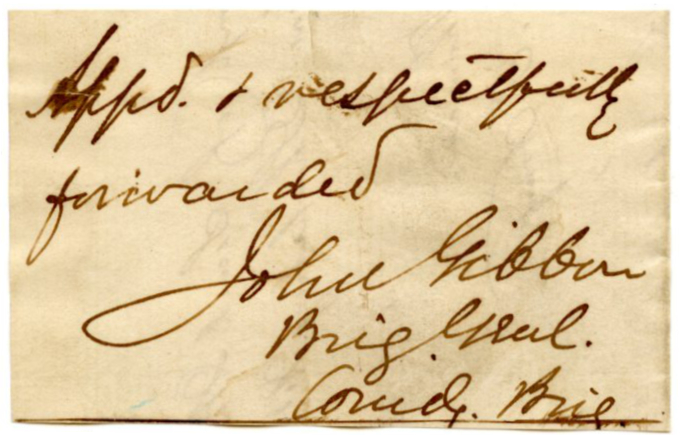 Appd. & respectfully
forwarded
John Gibbon
Brig. Genl.
Comdg. Brig.